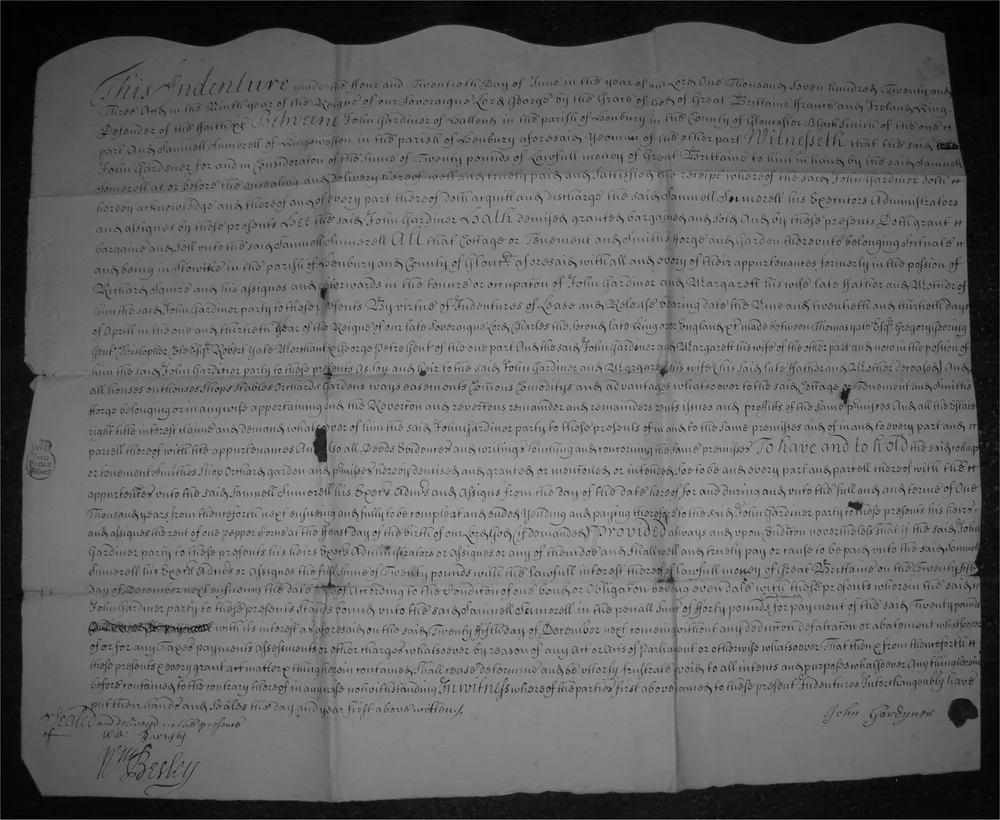 This Indenture made the ffour and Twentieth Day of June in the year of our Lord One Thousand Seven hundred Twenty and
Three And in the Ninth year of the Reigne of our Soveraigne Lord George by the Grace of God of Great Brittaine ffrance and Ireland King
Defender of the ffaith &c Betweene John Gardiner of in the parish of Henbury in the County of Gloucester BlackSmith of the one
part And Samuell Sumerell of Kingsweston in the parish of Henbury aforesaid Yeoman of the other part Witnesseth that the said
John Gardiner for and in Consideration of the Sume of Twenty pounds of Lawfull money of Great Brittaine to him in hand by the said Samuell
Sumerell at or before the ensealing and Delivery thereof well and truely paid and Satisfied the receipt whereof the said John Gardiner doth
hereby acknowledge and thereof and of every part thereof doth acquitt and discharge the said Samuell Sumerell his Executors Administrators
and assignes by these presents Hee the said John Gardiner Hath demised granted bargained and Sold And by these presents Doth grant
bargaine and sell unto the said Samuell Sumerell All that Cottage or Tenement and Smiths fforge and Garden thereunto belonging Scituate
and being in Stowick in the parish of Henbury and County of Glouc aforesaid with all and every of their appurtenances formerly in the possion of
Richard Squire and his assignes and afterwards in the tenure or occupation of John Gardiner and Margarett his wife late ffather and Mother of
him the said John Gardiner party to these presents By virtue of Indentures of Lease and Release bearing date the Nine and twentieth and thirtieth days
of Aprill in the one and thirtieth Year of the Reigne of our late Soveraigne Lord Charles the Second late King over England &c made between Thomas Yate Esqr Gregory Geering
Gent Christopher Cole Esqr Robert Yate Merchant & George Petre Gent of the one part And the said John Gardiner and Margarett his wife of the other part and now in the possion of
him the said John Gardiner party to these presents As Son and heir to the said John Gardiner and Margarett his wife (his said late ffather and Mother deceased) And
all houses outhouses Shops Stables Orchards Gardens ways easements Comons Comoditys and advantages whatsoever to the said Cottage or Tenement and Smiths
fforge belonging or in any wise appertaining and the Reverton and revertons remainder and remainders rents issues and proffitts of the same premises And all the Estate
right title interest claime and demand whatsoever of him the said John Gardiner party to these presents of in and to the same premises and of in and to every part and
parcell thereof with the appurtenances And also all Deeds Evidences and writings touching and concerning the same premises To have and to hold the said cottage
or tenement Smithes Shop Orchard garden and premises hereby demised and granted or mentioned or intended soe to be and every part and parcell thereof with the
appurtences unto the said Samuell Sumerell his Execrs Admrs and Assigns from the day of the date hereof for and during and unto the full end and terme of One
Thousand years from thenceforth next ensuing and fully to be compleat and ended Yeilding and paying therefore to the said John Gardiner party to these presents his heirs
and assignes the rent of one pepper Corne at the ffeast day of the birth of our Lord God (if demanded) Provided always and upon Condicon neverthelesse That if the said John
Gardiner party to these presents his heirs Execrs Administrators or Assignes or any of them doe and shall well and truely pay or cause to be paid unto the said Samuell
Sumerell his Execrs Admrs or Assignes the full Sume of Twenty pounds with the lawfull interest thereof of lawfull money of Great Brittaine on the Twenty fifth
day of December next ensueing the date hereof According to the Condition of one bond or Obligation bearing even date with these presents wherein the said
John Gardiner party to these presents stands bound unto the said Samuell Sumerell in the penall Sume of fforty pounds for payment of the said Twenty pounds
with its interest as aforesaid on the said Twenty fifth day of December next comeing without any deduction defalcation or abatement whatsoever
of or for any Taxes payments assessments or other charges whatsoever by reason of any Act or Acts of Parliament or otherwise whatsoever That then & from thenceforth
these presents & every grant act matter & thing herein contained shall cease determine and be utterly frustrate & void to all intents and purposes whatsoever Any thing herein
before contained to the contrary thereof in any wise notwithstanding In witness whereof the parties first above named to these present Indentures Interchangeably have
put their hands and Seales the day and year first above written
John Gardyner
Sealed and delivered in the presence
of
Wm Besley